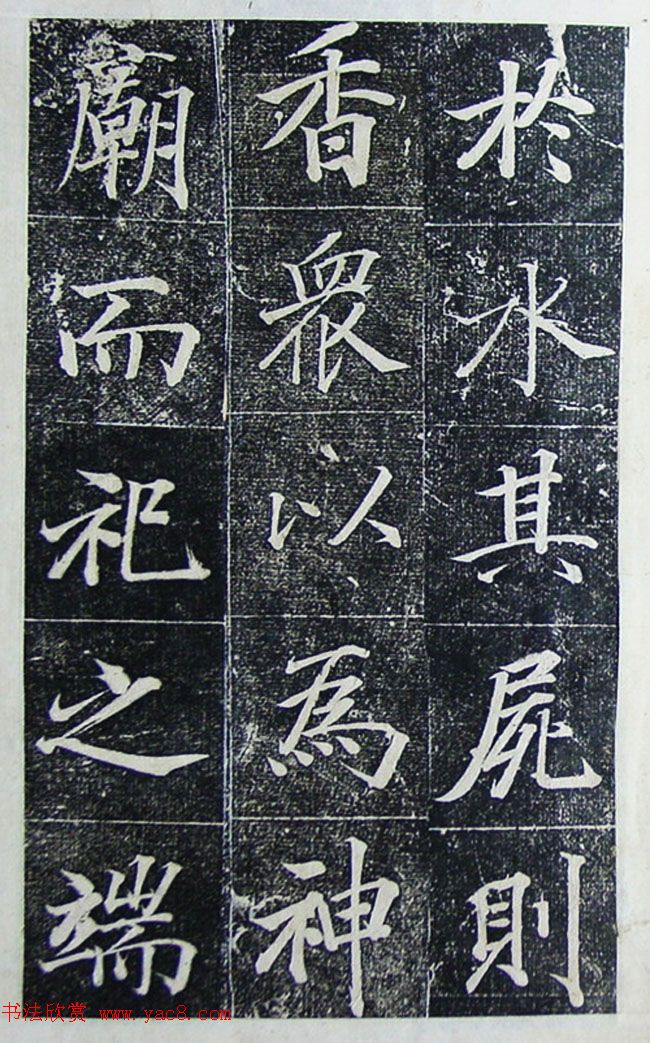 於水其屍則
香衆以為神
廟而祀之端
书法欣赏 www.yac8.com